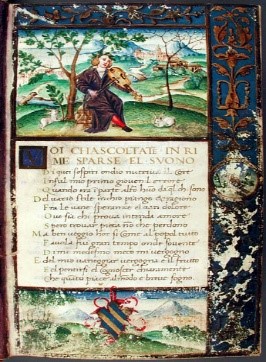 VOI CHASCOLTATE IN RI
ME SPARSE EL SVONO
Di quei sospiri ondio nutriva il cor
In sul mio primo giovenil errore
Quando era i parte altr huo da ql chi sono
Del vario stile inchio piango & ragiono
Fra le vane speranze el van dolore
Ove sia chi prova intenda amore
Spero trovar pieta no che perdono
Ma ben veggio hor si come al popol tutto
Favola fui gran tempo onde sovente
Di me medesmo meco mi vergogno
E del mio vaneggiar vergogna e il frutto
El pentirsi el cognoscer chiaramente
Che quato piace al modo e breve sogno